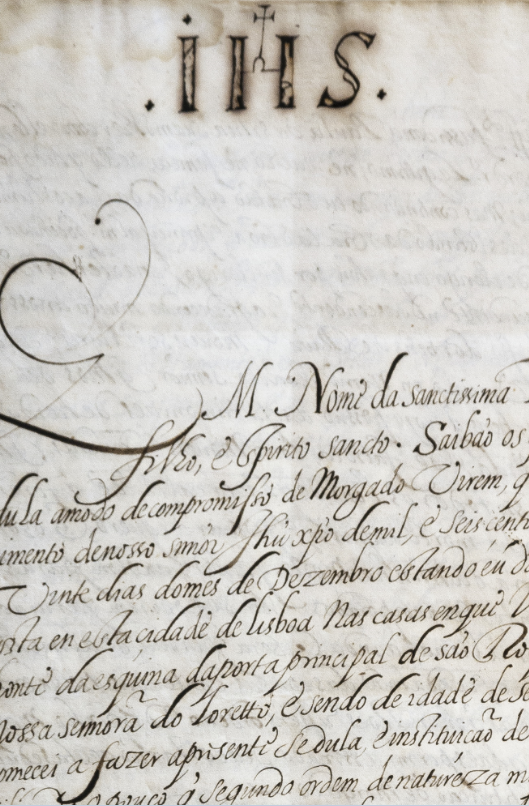 .IHS.
EM Nome da sanctissima
filho, e Espirito sancto. Saibaõ os
dula amodo decompromisso de Morgado Virem, q
umento denosso senhor Jhũ xp̃o demil, e seiscent
Vinte dias domes de Dezembro estando eu
en esta cidade de lisboa Nas casas en que
daesquina daporta principal de saõ
Nossa senhora do loretto, e sendo de idade de
omecei a fazer apresente sedula, e instituicaõ de
q segundo ordem de natureza m